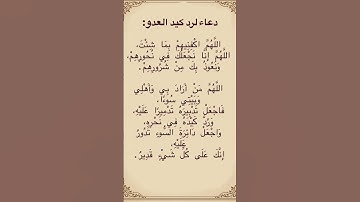 دعاء لرد كيد العدو:
اللَّهُمَّ اكْفِنِيهِمْ بِمَا شِئْتَ،
اللَّهُمَّ إِنَّا نَجْعَلُكَ فِي نُحُورِهِمْ،
وَنَعُوذُ بِكَ مِنْ شُرُورِهِمْ.
اللَّهُمَّ مَنْ أَرَادَ بِي وَأَهْلِي
وَبَيْتِي سُوءًا،
فَاجْعَلْ تَدْبِيرَهُ تَدْمِيرًا عَلَيْهِ،
وَرُدَّ كَيْدَهُ فِي نَحْرِهِ،
وَاجْعَلْ دَائِرَةَ السُّوءِ تَدُورُ
عَلَيْهِ.
إِنَّكَ عَلَى كُلِّ شَيْءٍ قَدِيرٌ.